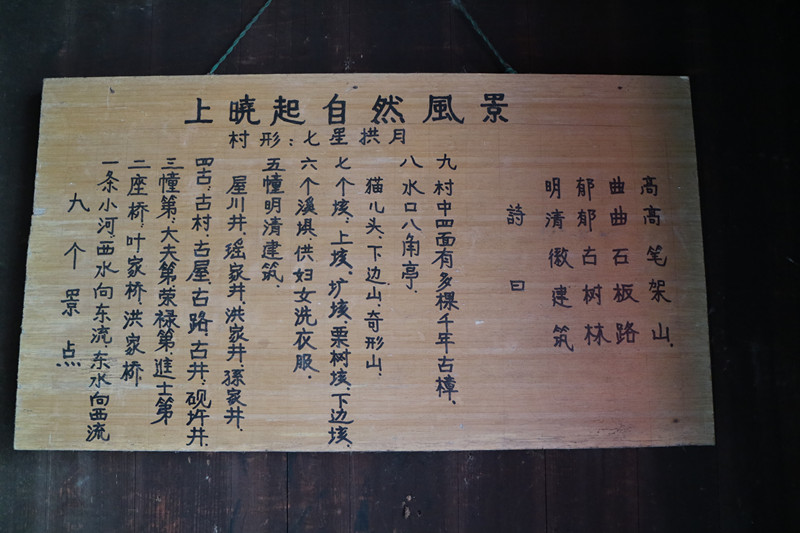 上曉起自然風景
村形:七星拱月
九个景点
一条小河西水向东流.东水向西流
二座桥:叶家桥.洪家桥.
三幢第:大夫第.荣禄第.進士第
四古:古村.古屋.古路.古井:砚圬井.
屋川井.瑶家井.洪家井.孫家井.
五幢明清建筑.
六个溪埧.供妇女洗衣服.
七个垓.上垓.圹垓.栗树垓.下边垓.
猫儿头.下边山.奇形山.
八水口八角亭.
九村中四面有多棵千年古樟.
詩曰
明清徽建筑
郁郁古树林
曲曲石板路
高高笔架山.